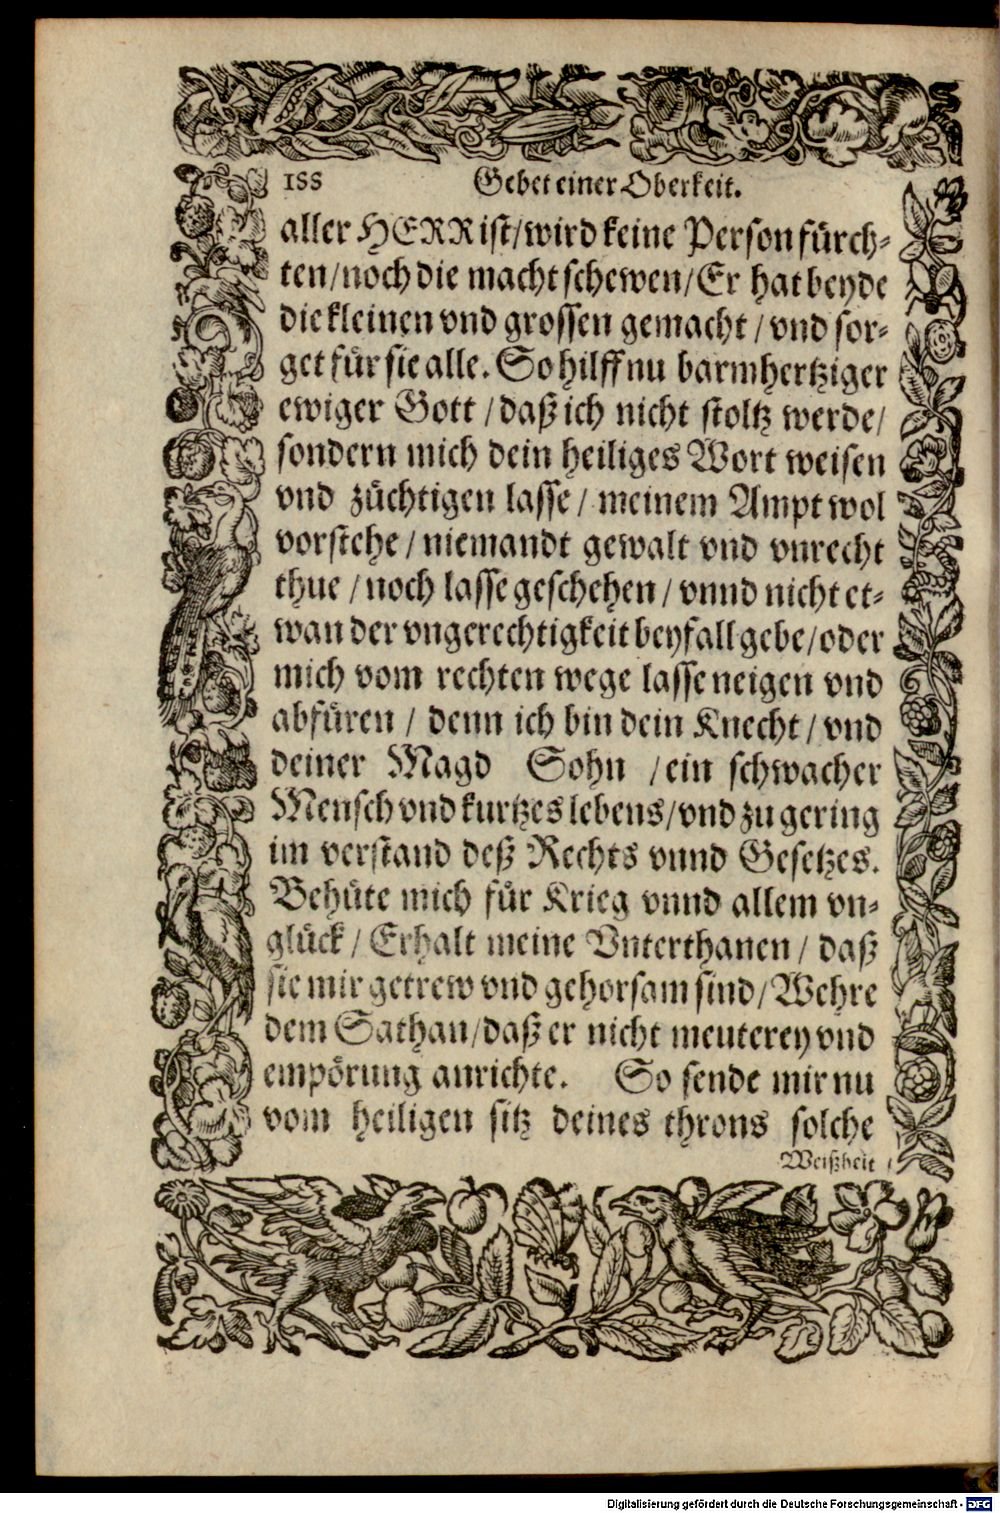 188 Gebet einer Oberkeit.
aller HERR ist/wird keine Person fürch-
ten/noch die macht schewen/Er hat beyde
die kleinen vnd grossen gemacht/vnd sor-
get für sie alle. So hilff nu barmhertziger
ewiger Gott/daß ich nicht stoltz werde/
sondern mich dein heiliges Wort weisen
vnd züchtigen lasse/meinem Ampt wol
vorstehe/niemandt gewalt vnd vnrecht
thue/noch lasse geschehen/vnnd nicht et-
wan der vngerechtigkeit beyfall gebe/oder
mich vom rechten wege lasse neigen vnd
abfüren/denn ich bin dein Knecht/vnd
deiner Magd Sohn/ein schwacher
Mensch vnd kurtzes lebens/vnd zu gering
im verstand deß Rechts vnnd Gesetzes.
Behüte mich für Krieg vnnd allem vn-
glück/Erhalt meine Vnterthanen/daß
sie mir getrew vnd gehorsam sind/Wehre
dem Sathan/daß er nicht meuterey vnd
empörung anrichte. So sende mir nu
vom heiligen sitz deines throns solche
Weißheit
Digitalisierung gefördert durch die Deutsche Forschungsgemeinschaft - DFG